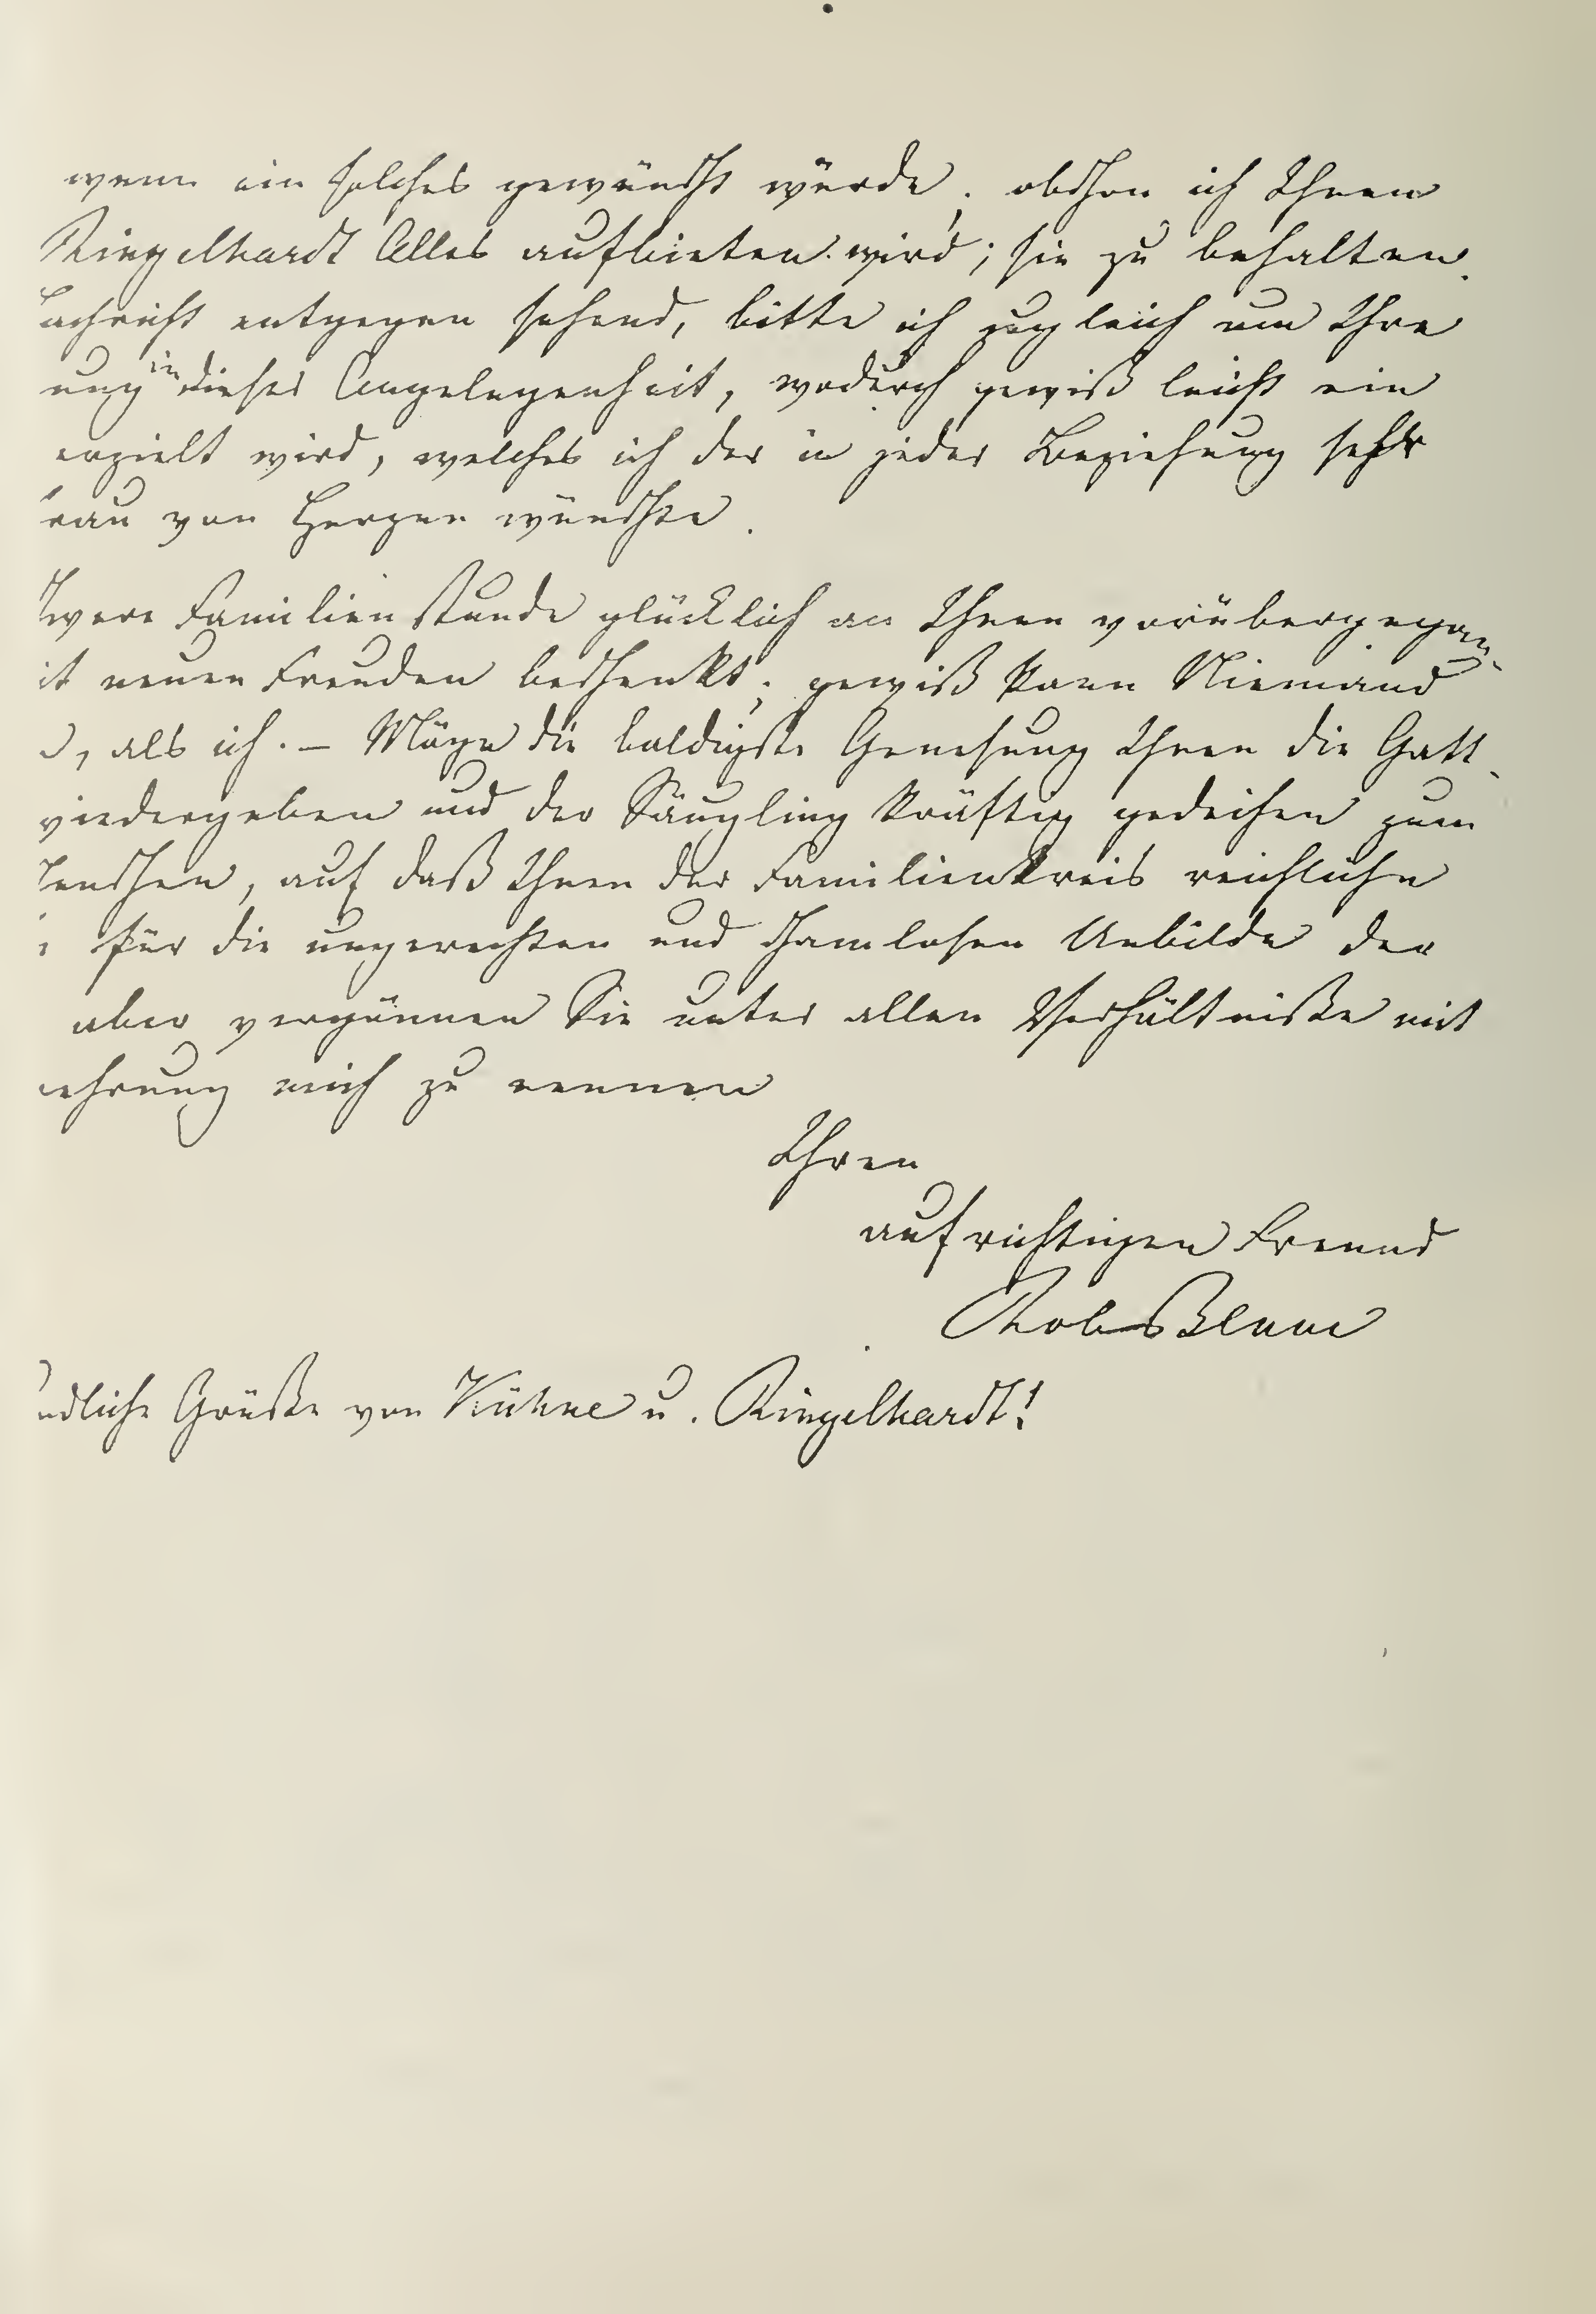 wenn ein solches gewünscht würde, obschon ich Ihnen
Ringelhardt Alles aufbieten wird; sie zu behalten.
achricht entgegen sehend, bitte ich zugleich um Ihre
ung in dieser Angelegenheit, wodurch gewiß leicht ein
erzielt wird, welches ich der in jeder Beziehung sehr
rau von Herzen wünschte.
were Familienstunde glücklich an Ihnen vorübergegan-
it neuen Freuden beschenkt; gewiß kann Niemand
, als ich. – Möge die baldigste Genesung Ihnen die Gatt-
wiedergeben und der Säugling kräftig gedeihen zum
enschen, auf daß Ihnen der Familienkreis reichliche
für die ungerechten und schamlosen Unbilde der
aber vergönnen Sie unter allen Verhältniße mit
ehrung mich zu nennen
Ihren
aufrichtigen Freund
Rob Blum
ndliche Grüße von Kühne u. Ringelhardt!